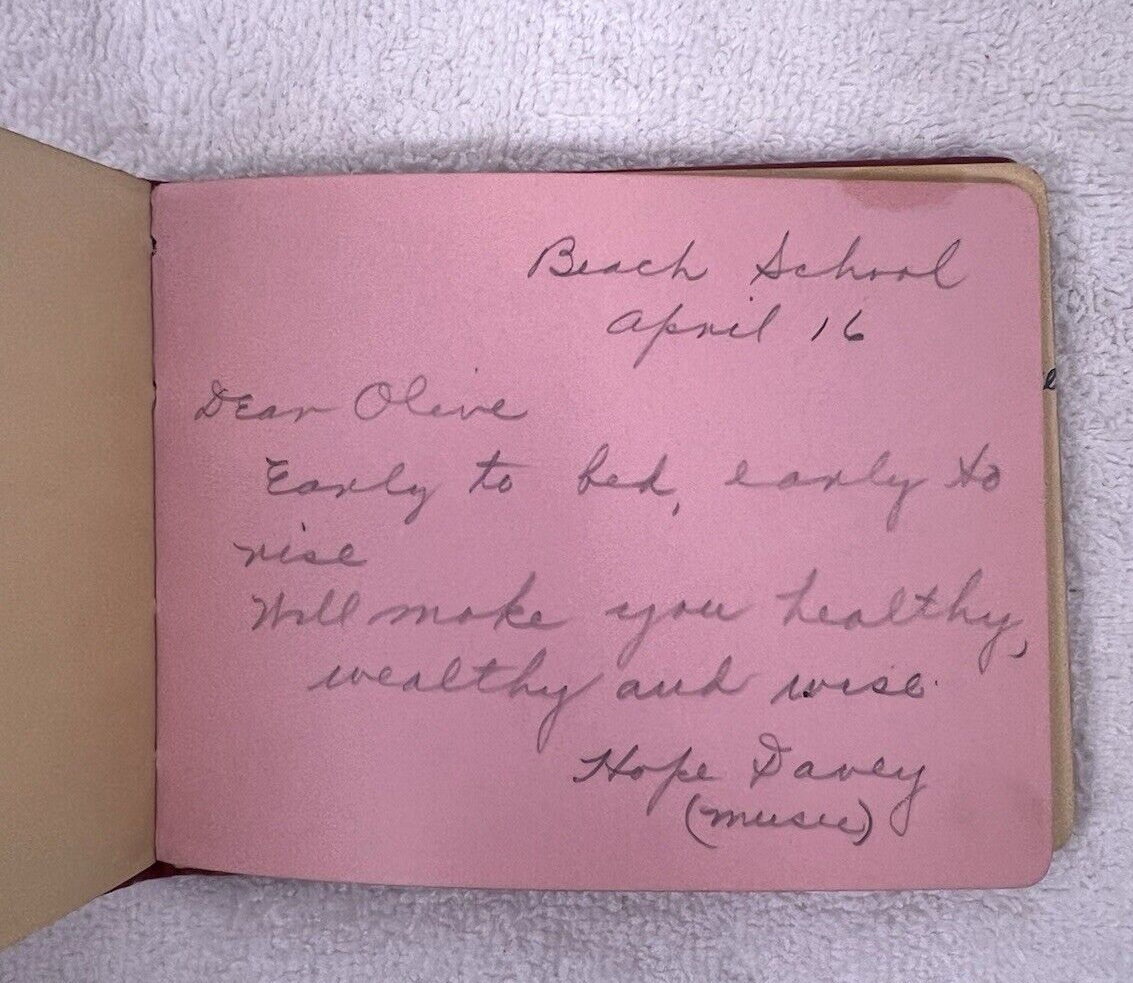 Beach School
April 16
Dear Olive
Early to bed, early to
rise
Will make you healthy,
wealthy and wise.
Hope Davey
(music)